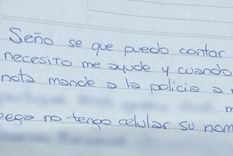 Seño se que puedo contar
necesito me ayude y cuando
nota mande a la policia a
pego no tengo celular su nom